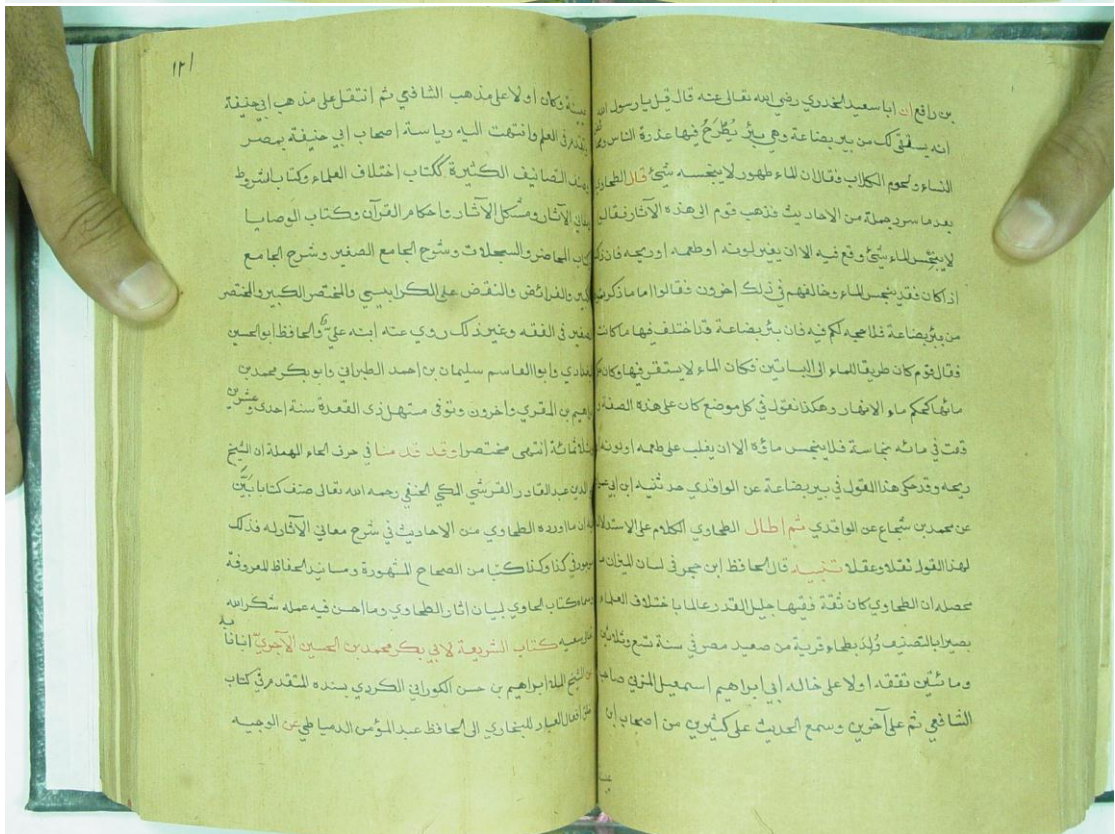 بن رافع ان ابا سعيد الخدري رضي الله تعالى عنه قال قيل يا رسول الله
انه يستقى لك من بير بضاعة وهي بير يُطْرَحُ فيها عذرة الناس
النساء ولحوم الكلاب فقال ان الماء طهور لا ينجسه شيئ قال الطحاوي
بعد ما سرد جملة من الاحاديث فذهب قوم الى هذه الآثار فقالوا
لا ينجس الماء شيئ وقع فيه الا ان يغير لونه او طعمه او ريحه فاي ذلك
اذا كان فقد ينجس الماء وخالفهم في ذلك اخرون فقالوا اما ما ذكرتموه
من بئر بضاعة فلا حجه لكم فيه فان بئر بضاعة قد اختلف فيها ما كانت
فقال قوم كان طريقا للماء الى البساتين فكان الماء لا يستقر فيها وكان
مائها كحكم ماء الانهار وهكذا نقول في كل موضع كان على هذه الصفة و
قعت في مائه نجاسة فلا ينجس ماؤه الا ان يغلب على طعمه او لونه او
ريحه وقد حكي هذا القول في بير بضاعة عن الواقدي حدثنيه ابن ابي عمران
عن محمد بن شجاع عن الواقدي ثم اطال الطحاوي الكلام على الاستدلال
لهذا القول نقلا وعقلا تنبيه قال الحافظ ابن حجر في لسان الميزان ما
محصله ان الطحاوي كان ثقة فقيها جليل القدر عالما باختلاف العلماء
بصيرا بالتصنيف وُلِدَ بطحاء قرية من صعيد مصر في سنة تسع وثلاثين
ومائتين تفقه اولا على خاله ابي ابراهيم اسمعيل المزني صاحب
الشافعي ثم على آخرين وسمع الحديث على كثيرين من اصحاب ابن
عيينة
١٢١
عيينة وكان اولا على مذهب الشافعي ثم انتقل على مذهب ابي حنيفة
وتقدم في العلم وانتهت اليه رياسة اصحاب ابي حنيفة بمصر
وصنف التصانيف الكثيرة ككتاب اختلاف العلماء وكتاب الشروط
ومعاني الآثار ومشكل الآثار واحكام القرآن وكتاب الوصايا
وكتاب المحاضر والسجلات وشرح الجامع الصغير وشرح الجامع
الكبير والفرائض والنقض على الكرابيسي والمختصر الكبير والمختصر
الصغير في الفقه وغير ذلك روي عنه ابنه علي والحافظ ابو الحسين
البغدادي وابو القاسم سليمان بن احمد الطبراني وابو بكر محمد بن
ابراهيم بن المقري وآخرون وتوفى مستهل ذى القعدة سنة احدى وعشرين
وثلاثمائة انتهى مختصرا وقد قدمنا في حرف الحاء المهملة ان الشيخ
محي الدين عبد القادر القرشي المكي الحنفي رحمه الله تعالى صنف كتابا بَيَّنَ
فيه ان ما اورده الطحاوي من الاحاديث في شرح معاني الآثار له فذلك
موجود في كذا وكذا كتبا من الصحاح المشهورة ومسانيد الحفاظ المعروفة
وسماه كتاب الحاوي لبيان اثار الطحاوي وما احسن فيه عمله شكر الله
تعالى سعيه كتاب الشريعة لابي بكر محمد بن الحسين الآجريّ انبأنا به
عن الشيخ الملا ابراهيم بن حسن الكوراني الكردي بسنده المتقدم في كتاب
خلق افعال العباد للبخاري الى الحافظ عبد المؤمن الدمياطي عن الوجيه